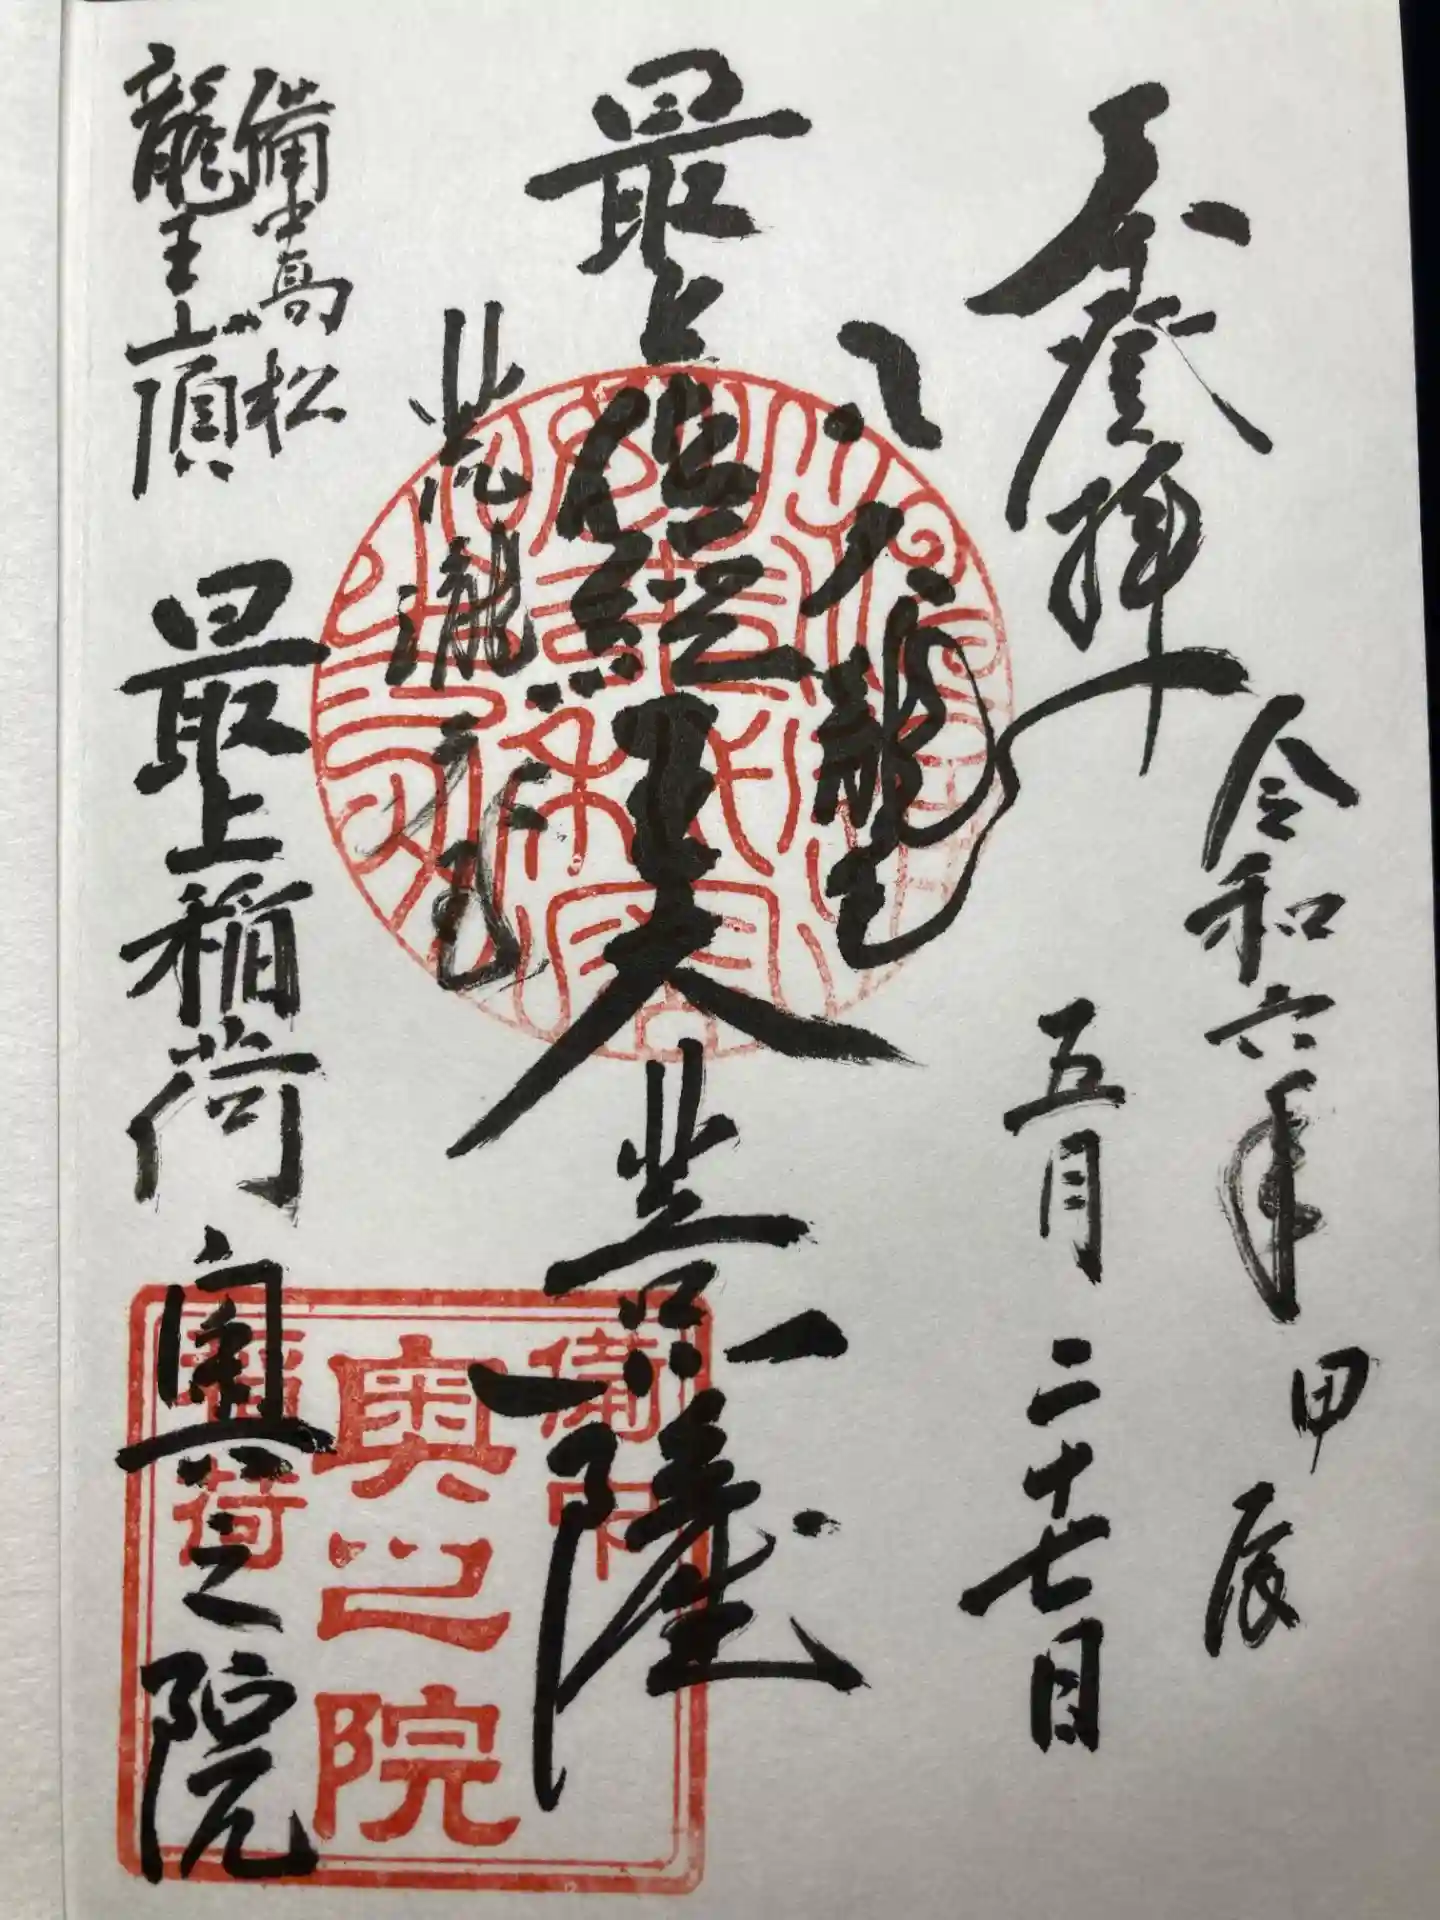 登拝
令和六年 甲辰
五月二十七日
八大龍王
最上位経王大菩薩
備中高松
龍王山頂
最上稲荷奥之院
備中
奥之院
稲荷